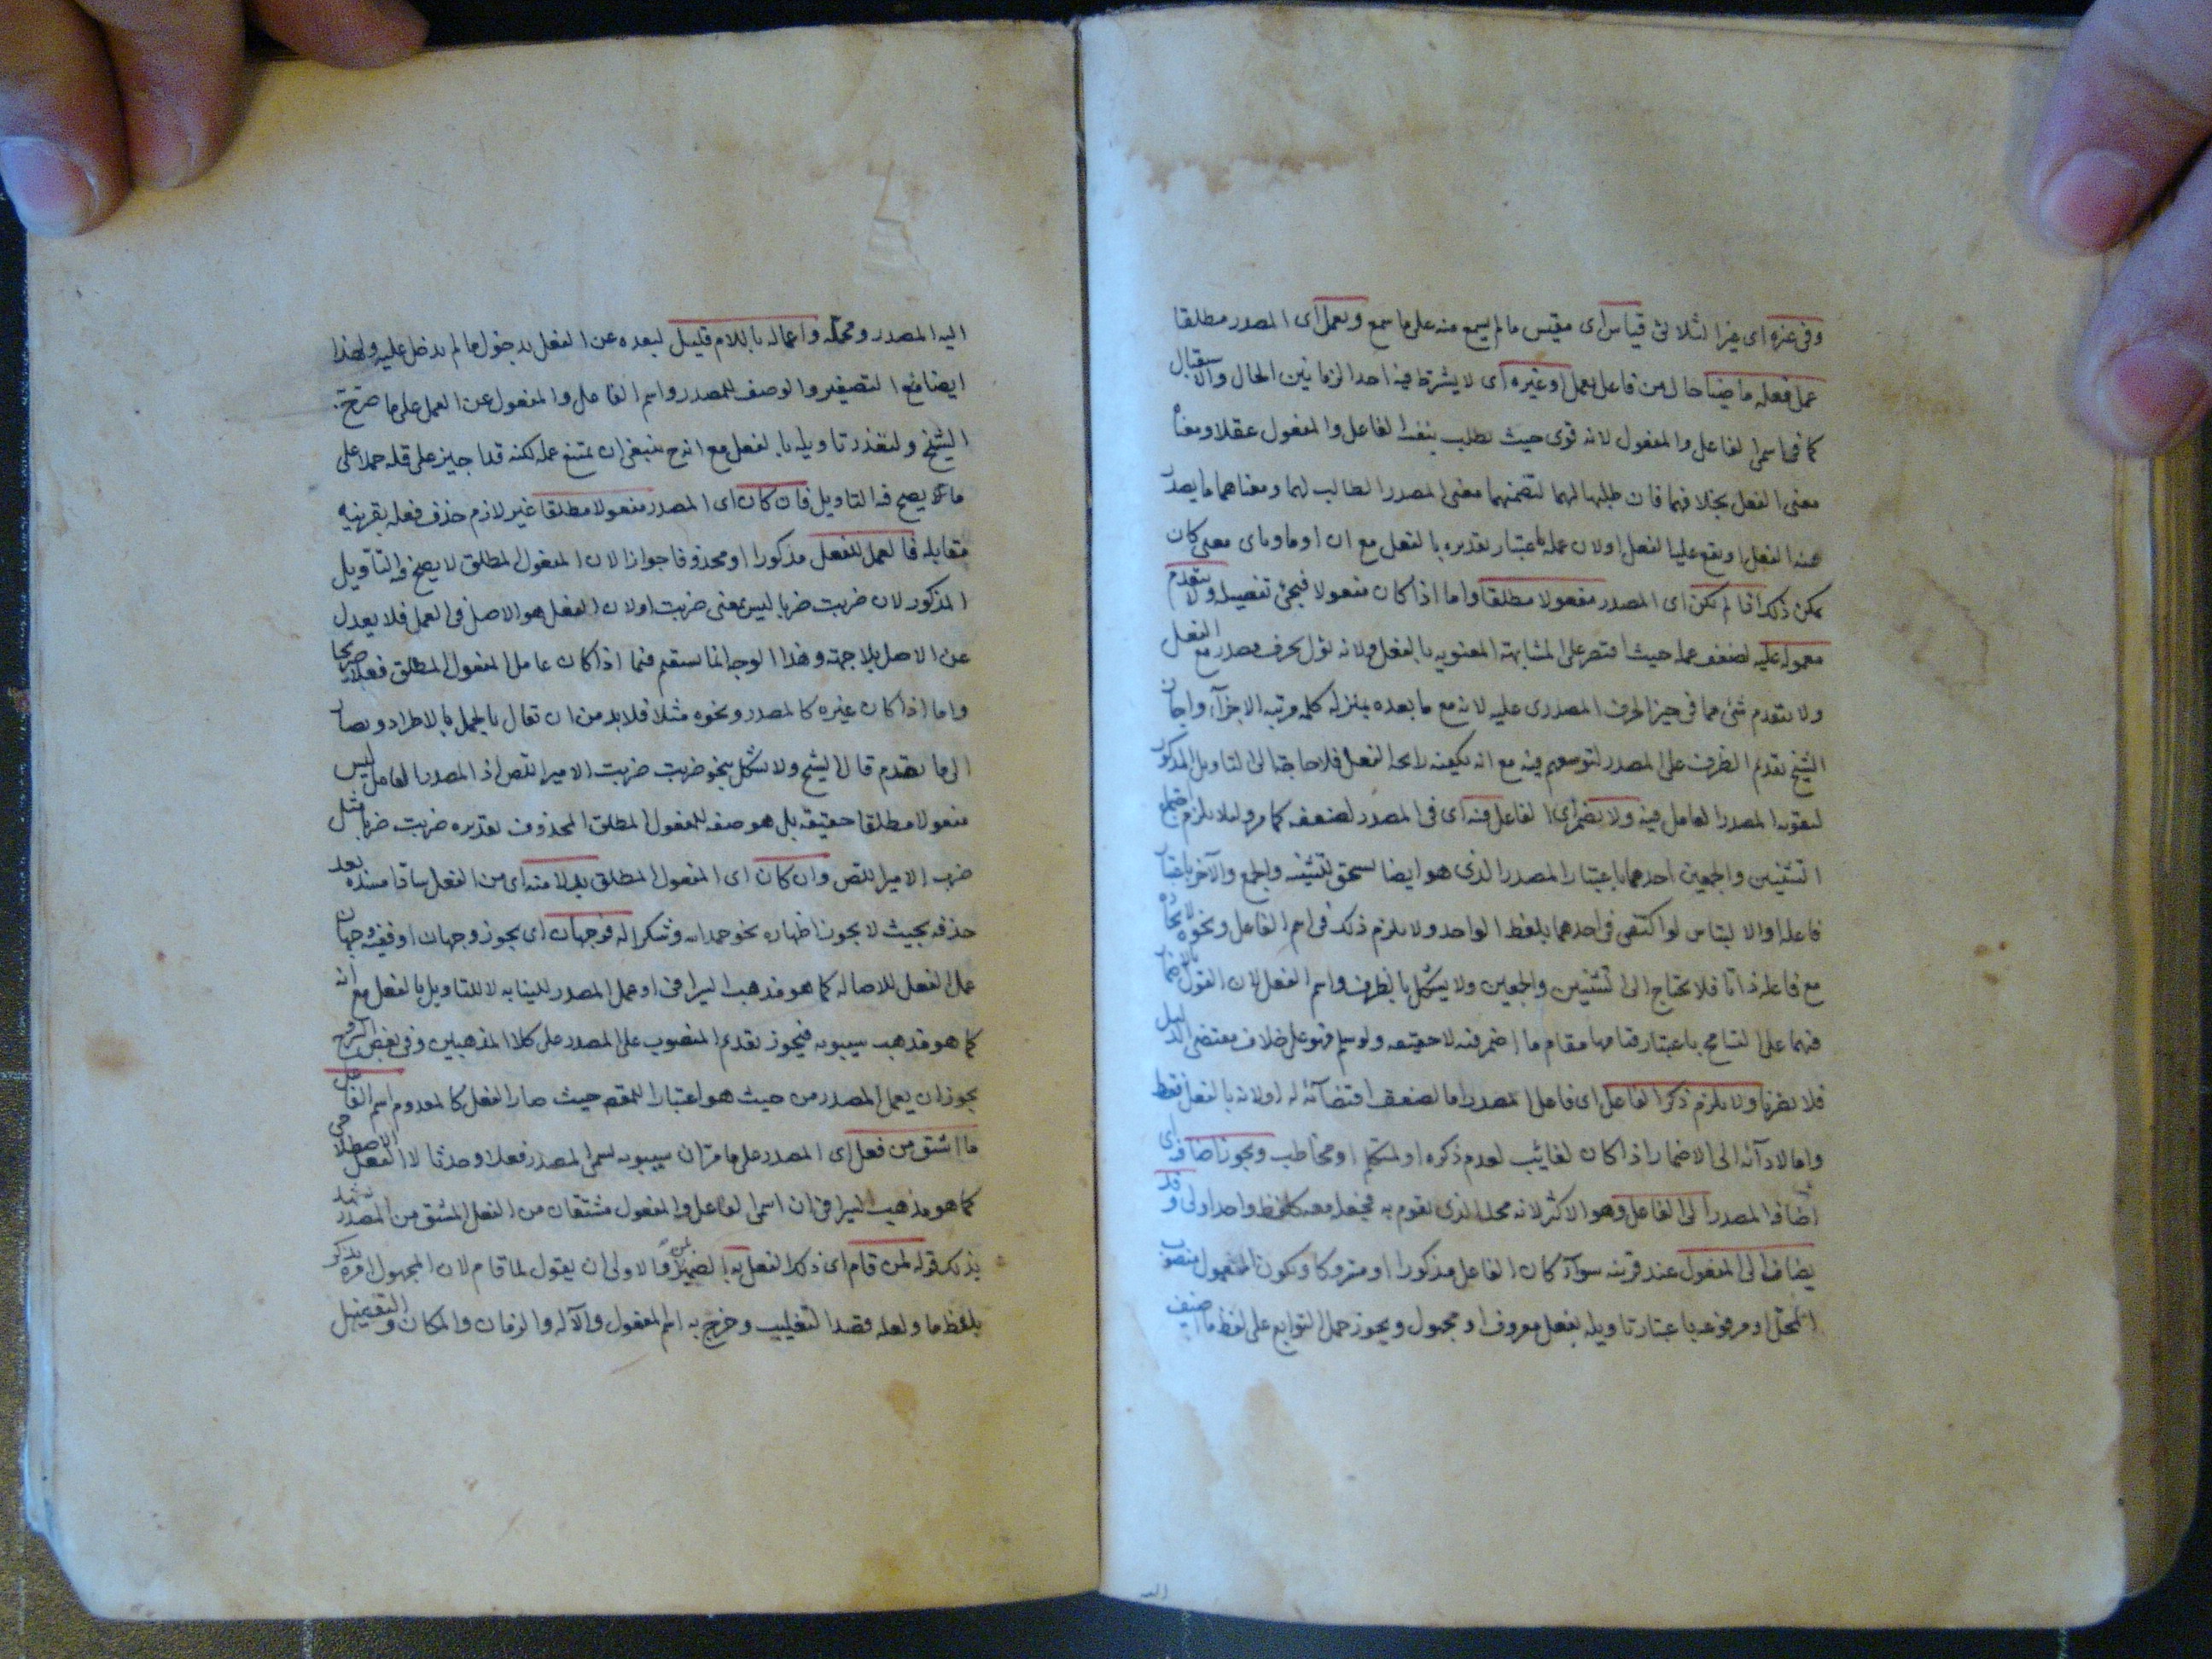 وفى غيره اى غير الثلاثى قياس اى مقيس ما لم يسمع منه على ما سمع ويعمل اى المصدر مطلقا
عمل فعله ماضيا حال من فاعل يعمل او غيره اى لا يشترط فيه احد الزمانين الحال والاستقبال
كما فى اسمى الفاعل والمفعول لانه قوى حيث يطلب بنفسه الفاعل والمفعول عقلا ومعناه
معنى الفعل بخلافهما فان طلبهما لهما لتضمنهما معنى المصدر الطالب لهما ومعناهما ما يصدر
عنه الفعل او يقع عليه الفعل اولان عمله باعتبار تقديره بالفعل مع ان او ما وباى معنى كان
يمكن ذلك اذا لم يكن اى المصدر مفعولا مطلقا واما اذا كان مفعولا فيجئ تفصيله ولا يتقدم
معموله عليه لضعف عمله حيث اقتصر على المشابهة المعنوية بالفعل ولانه يؤل بحرف مصدر مع الفعل
ولا يتقدم شئ مما فى حيز الحرف المصدرى عليه لانه مع ما بعده بمنزلة كلمة مرتبة الاجزآء واجاز
الشيخ تقديم الظرف على المصدر لتوسعهم فيه مع انه يكفيه رايحة الفعل فلا حاجة الى التاويل المذكور
لتقوية المصدر العامل فيه ولا يضمر اى الفاعل فيه اى فى المصدر لضعفه كما مر ولئلا يلزم اجتماع
التثنيتين والجمعين احدهما باعتبار المصدر الذى هو ايضا يستحق لتثنية والجمع والآخر باعتبار
فاعله او الالتباس لو اكتفى فى احدهما بلفظ الواحد ولا يلزم ذلك فى اسم الفاعل ونحوه لاتحاده
مع فاعله ذاتا فلا يحتاج الى تثنيتين والجمعين ولا يشكل بالظرف واسم الفعل لان القول بالاضمار
فيهما على التسامح باعتبار قيامها مقام ما اضمر فيه لا حقيقة ولو سلم فهو على خلاف مقتضى الدليل
فلا يضرنا ولا يلزم ذكر الفاعل اى فاعل المصدر اما لضعف اقتضآئه له اولانه بالفعل فقط
واما لادآئه الى الاضمار اذا كان لغائب لعدم ذكره او لمتكلم او مخاطب ويجوز اضافته اى
اضافة المصدر الى الفاعل وهو الاكثر لانه محله الذى يقوم به فجعله معه كلفظ واحد اولى وقد
يضاف الى المفعول عند قرينة سوآء كان الفاعل مذكورا او متروكا ويكون المفعول منصوب
المحل او مرفوعه باعتبار تاويله بفعل معروف او مجهول ويجوز حمل التوابع على لفظ ما اضيف
اليه
اليه المصدر ومحله واعماله باللام قليل لبعده عن الفعل بدخول ما لم يدخل عليه ولهذا
ايضا منع التصغير والوصف للمصدر واسم الفاعل والمفعول عن العمل على ما صرح به
الشيخ ولتعذر تاويله بالفعل مع ان ينبغى ان يمتنع عمله لكنه قد اجيز على قلة حملا على
ما يصح فيه التاويل فان كان اى المصدر مفعولا مطلقا غير لازم حذف فعله بقرينة
مقابله فالعمل للفعل مذكورا او محذوفا جوازا لان المفعول المطلق لا يصح فيه التاويل
المذكور لان ضربت ضربا ليس بمعنى ضربت اولان الفعل هو الاصل فى العمل فلا يعدل
عن الاصل بلا جهة وهذا الوجه انما يستقيم فيما اذا كان عامل المفعول المطلق فعلا صريحا
واما اذا كان غيره كالمصدر ونحوه مثلا فلابد من ان يقال بالحمل بالاطراد ويصار
الى ما تقدم قال الشيخ ولا يشكل بنحو ضربت ضربت الامير اللص اذ المصدر العامل ليس
مفعولا مطلقا حقيقة بل هو صفة للمفعول المطلق المحذوف تقديره ضربت ضربا مثل
ضرب الامير اللص وان كان اى المفعول المطلق بدلا منه اى من الفعل سادا مسده بعد
حذفه بحيث لا يجوز اظهاره نحو حمدا له وشكرا له فوجهان اى يجوز وجهان او ففيه وجهان
عمل الفعل للاصالة كما هو مذهب السيرافى او عمل المصدر للنيابة لا للتاويل بالفعل مع انه
كما هو مذهب سيبويه فيجوز تقديم المنصوب على المصدر على كلا المذهبين وفى بعض الشروح
يجوز ان يعمل المصدر من حيث هو اعتبارا للفظه حيث صار الفعل كالمعدوم اسم الفاعل
ما اشتق من فعل اى المصدر على ما مر ان سيبويه يسمى المصدر فعلا وحدثا لا الفعل الاصطلاحى
كما هو مذهب السيرافى ان اسمى الفاعل والمفعول مشتقان من الفعل المشتق من المصدر
بذلك قوله لمن قام اى ذلك الفعل به الضمير لمن والاولى ان يقول لما قام لان المجهول امره يذكر
بلفظ ما ولعله قصد التغليب وخرج به اسم المفعول والآلة والزمان والمكان والتفضيل